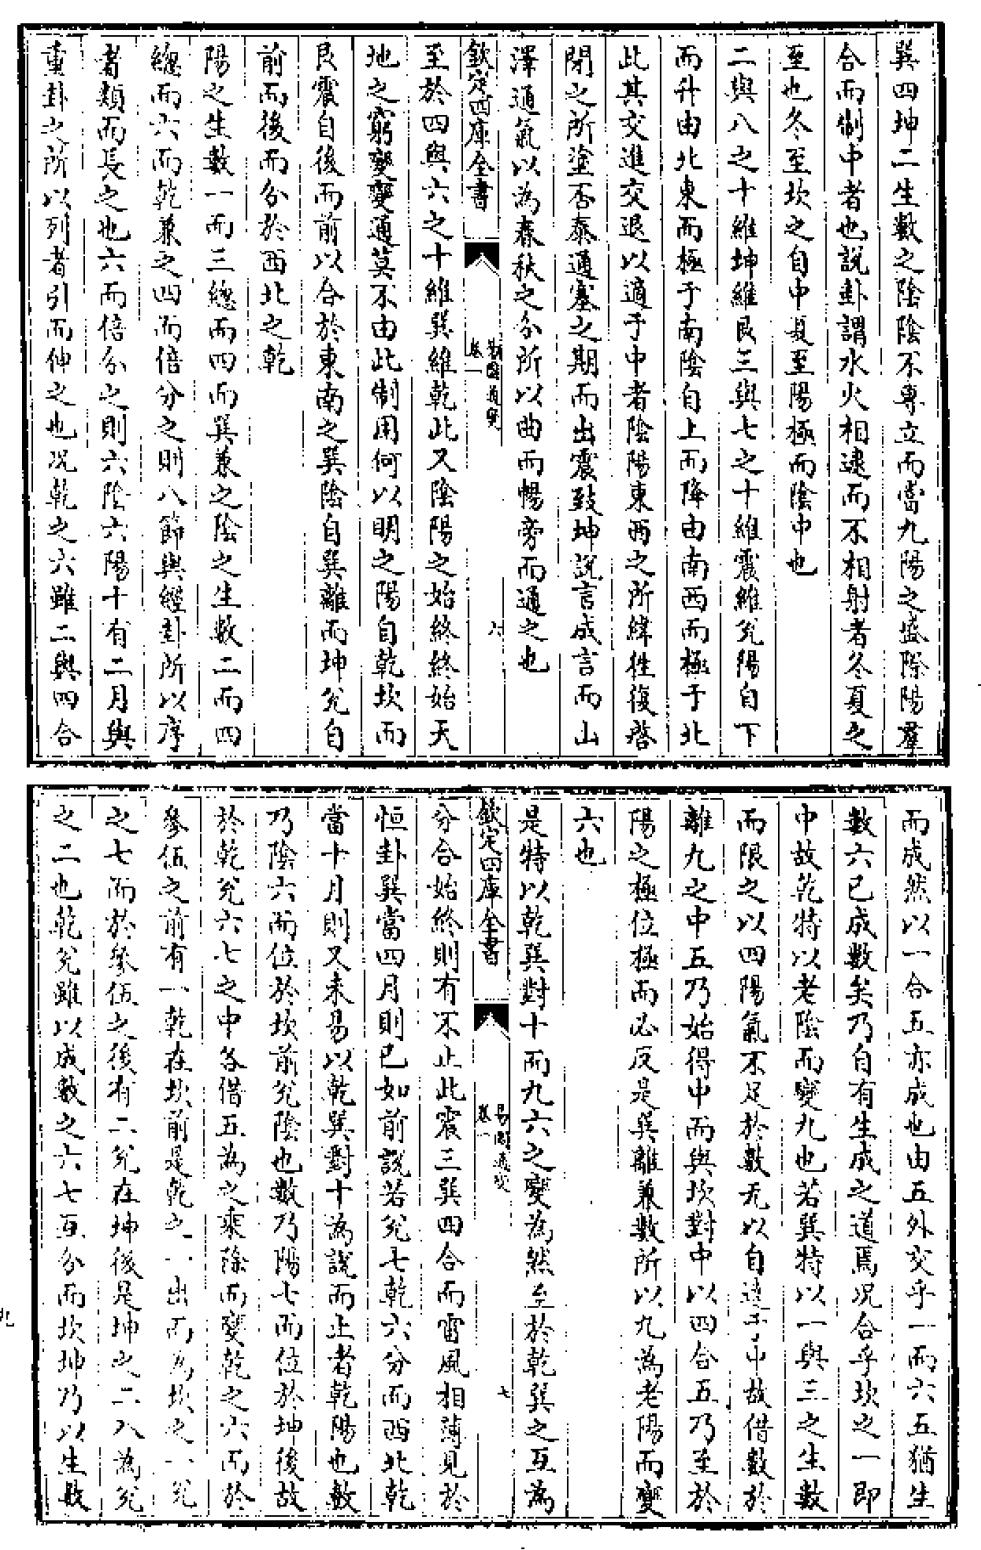 巽四坤二生數之陰陰不專立而當九陽之盛際陽羣
合而制中者也說卦謂水火相逮而不相射者冬夏之
至也冬至坎之自中夏至陽極而陰中也
二與八之十維坤維艮三與七之十維震維兊陽自下
而升由北東而極于南陰自上而降由南西而極于北
此其交進交退以適于中者陰陽東西之所緯徃復啓
閉之所塗否泰通塞之期而出震致坤說言成言而山
澤通氣以為春秋之分所以曲而暢旁而通之也
欽定四庫全書
易圖通變
卷一
六
至於四與六之十維巽維乾此又陰陽之始終終始天
地之窮變變通莫不由此制用何以明之陽自乾坎而
艮震自後而前以合於東南之巽陰自巽離而坤兊自
前而後而分於西北之乾
陽之生數一而三總而四而巽兼之陰之生數二而四
總而六而乾兼之四而倍分之則八節與經卦所以序
者類而長之也六而倍分之則六陰六陽十有二月與
重卦之所以列者引而伸之也况乾之六雖二與四合
而成然以一合五亦成也由五外交乎一而六五猶生
數六已成數矣乃自有生成之道焉况合乎坎之一即
中故乾特以老陰而變九也若巽特以一與三之生數
而限之以四陽氣不足於數无以自達于中故借數於
離九之中五乃始得中而與坎對中以四合五乃至於
陽之極位極而必反是巽離兼數所以九為老陽而變
六也
是特以乾巽對十而九六之變為然至於乾巽之互為
欽定四庫全書
易圖通變
卷一
七
分合始終則有不止此震三巽四合而雷風相薄見於
恒卦巽當四月則已如前說若兊七乾六分而西北乾
當十月則又未易以乾巽對十為說而止者乾陽也數
乃陰六而位於坎前兊陰也數乃陽七而位於坤後故
於乾兊六七之中各借五為之乘除而變乾之六而於
參伍之前有一乾在坎前是乾之一出而為坎之一兊
之七而於參伍之後有二兊在坤後是坤之二入為兊
之二也乾兊雖以成數之六七互分而坎坤乃以生數
九